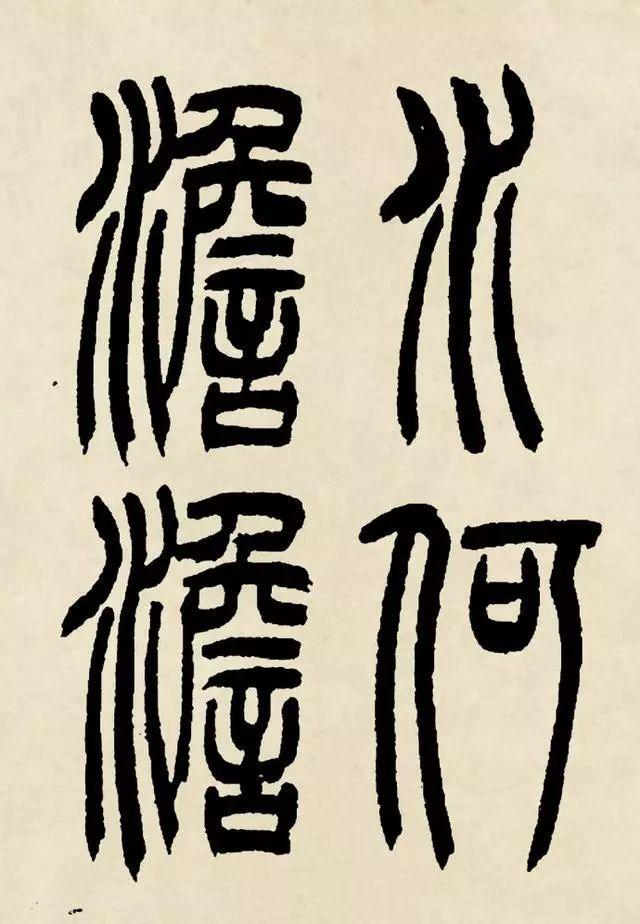 水何
澹澹